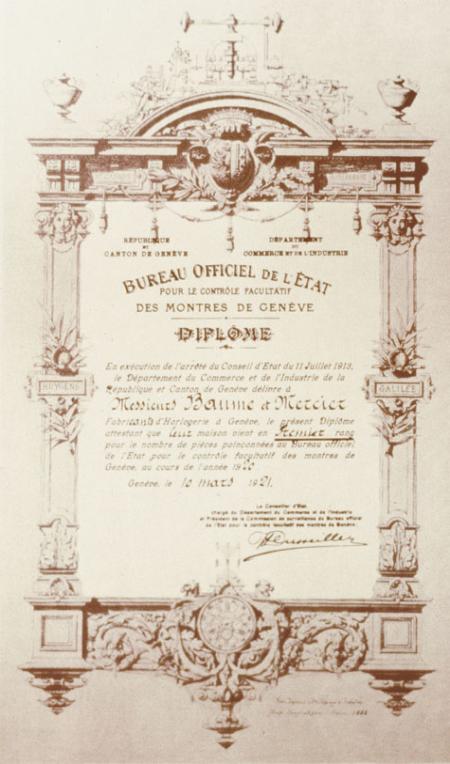 RÉPUBLIQUE
ET
CANTON DE GENÈVE
DÉPARTEMENT
DU
COMMERCE ET DE L'INDUSTRIE
BUREAU OFFICIEL DE L'ÉTAT
POUR LE CONTRÔLE FACULTATIF
DES MONTRES DE GENÈVE
DIPLÔME
En exécution de l'arrêté du Conseil d'Etat du 11 Juillet 1913,
le Département du Commerce et de l'Industrie de la
République et Canton de Genève délivre à
Messieurs Baume et Mercier
Fabricants d'Horlogerie à Genève, le présent Diplôme
attestant que leur maison vient en Premier rang
pour le nombre de pièces poinçonnées au Bureau officiel
de l'Etat pour le contrôle facultatif des montres de
Genève, au cours de l'année 1920
Genève, le 10 mars 1921.
HUYGENS
GALILÉE
Le Conseiller d'Etat,
chargé du Département du Commerce et de l'Industrie
et Président de la Commission de surveillance du Bureau officiel
de l'Etat pour le contrôle facultatif des montres de Genève: